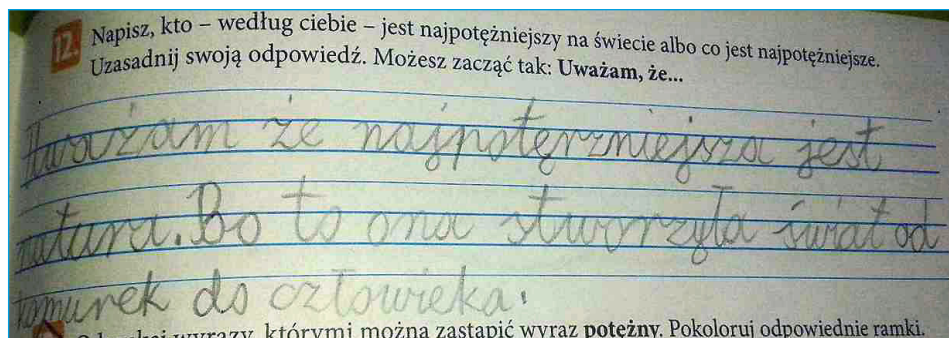 12. Napisz, kto – według ciebie – jest najpotężniejszy na świecie albo co jest najpotężniejsze.
Uzasadnij swoją odpowiedź. Możesz zacząć tak: Uważam, że...
Uważam że najpotęrzniejsza jest
natura. Bo to ona stworzyła świat od
komurek do człowieka.
wyrazy, którymi można zastąpić wyraz potężny. Pokoloruj odpowiednie ramki.